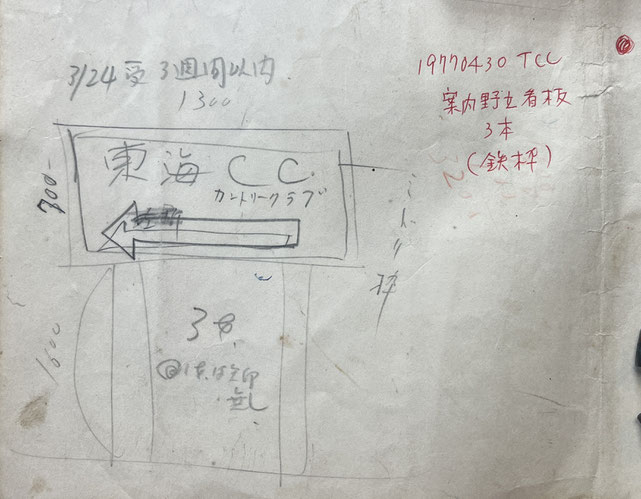 3/24受 3週間以内
1300
19770430 TCC
案内野立看板
3本
(鉄枠)
東海 CC.
カントリークラブ
700
1600
3本
無し